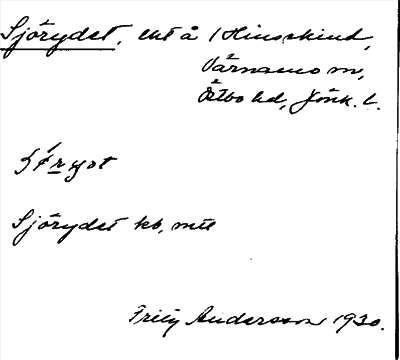 Sjörydet, ext å 1 Hinsekind,
Värnamo sn,
Östbo hd, Jönk. l.
Sjörydet kb, mtl
Fritz Andersson 1930.